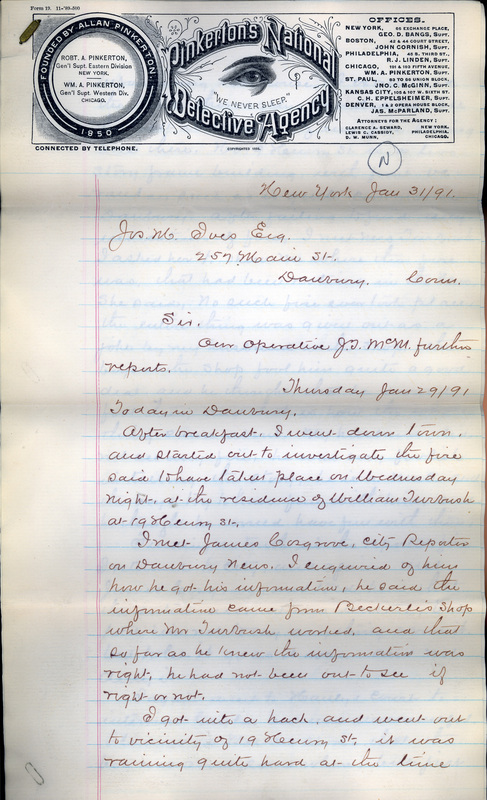 Form 19. 11-'89-500
FOUNDED BY ALLAN PINKERTON
1850
ROBT. A. PINKERTON,
Gen'l Supt. Eastern Division
NEW YORK.
WM. A. PINKERTON,
Gen'l Supt. Western Div.
CHICAGO.
CONNECTED BY TELEPHONE.
Pinkerton's National
"WE NEVER SLEEP."
Detective Agency
OFFICES.
NEW YORK, 66 EXCHANGE PLACE,
GEO. D. BANGS, SUPT.
BOSTON, 42 & 44 COURT STREET,
JOHN CORNISH, SUPT.
PHILADELPHIA, 45 S. THIRD ST.,
R. J. LINDEN, SUPT.
CHICAGO, 191 & 193 FIFTH AVENUE,
WM. A. PINKERTON, SUPT.
ST. PAUL, GERMANIA BANK BLOCK,
JNO. C. McGINN, SUPT.
KANSAS CITY, 105 & 107 W. SIXTH ST.
C. H. EPPELSHEIMER, SUPT.
DENVER, 1 & 2 OPERA HOUSE BLOCK,
JAS. McPARLAND, SUPT.
ATTORNEYS FOR THE AGENCY:
CLARENCE A. SEWARD, NEW YORK,
LEWIS C. CASSIDY, PHILADELPHIA,
D. W. MUNN, CHICAGO.
N
New York Jan 31/91.
Jos. M. Ives Esq.
257 Main St.
Danbury. Conn.
Sir.
Our Operative J.S. McM. further
reports.
Thursday Jan 29/91
Today in Danbury.
After breakfast, I went down town,
and started out to investigate the fire
said to have taken place on Wednesday
night, at the residence of William Turbush
at 19 Henry St.
I met James Cosgrove, City Reporter
on Danbury News. I enquired of him
how he got his information, he said the
information came from Beckerle's Shop
where Mr Turbush worked, and that
so far as he knew the information was
right, he had not been out to see if
right or not.
I got into a hack, and went out
to vicinity of 19 Henry St, it was
raining quite hard at the time